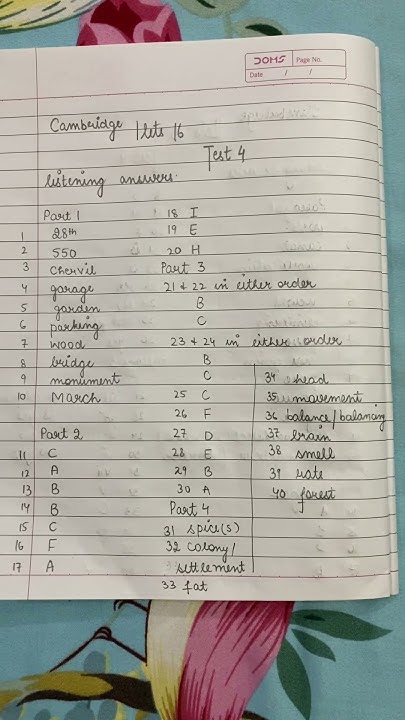 DOMS Page No.
Date / /
Cambridge Ilets 16
Test 4
listening answers.
Part 1
1 28th
2 550
3 Chervil
4 garage
5 garden
6 parking
7 wood
8 bridge
9 monument
10 March
Part 2
11 C
12 A
13 B
14 B
15 C
16 F
17 A
18 I
19 E
20 H
Part 3
21 & 22 in either order
B
C
23 & 24 in either order
B
C
25 C
26 F
27 D
28 E
29 B
30 A
Part 4
31 spice(s)
32 colony/
settlement
33 fat
34 head
35 movement
36 balance/balancing
37 brain
38 smell
39 rate
40 forest